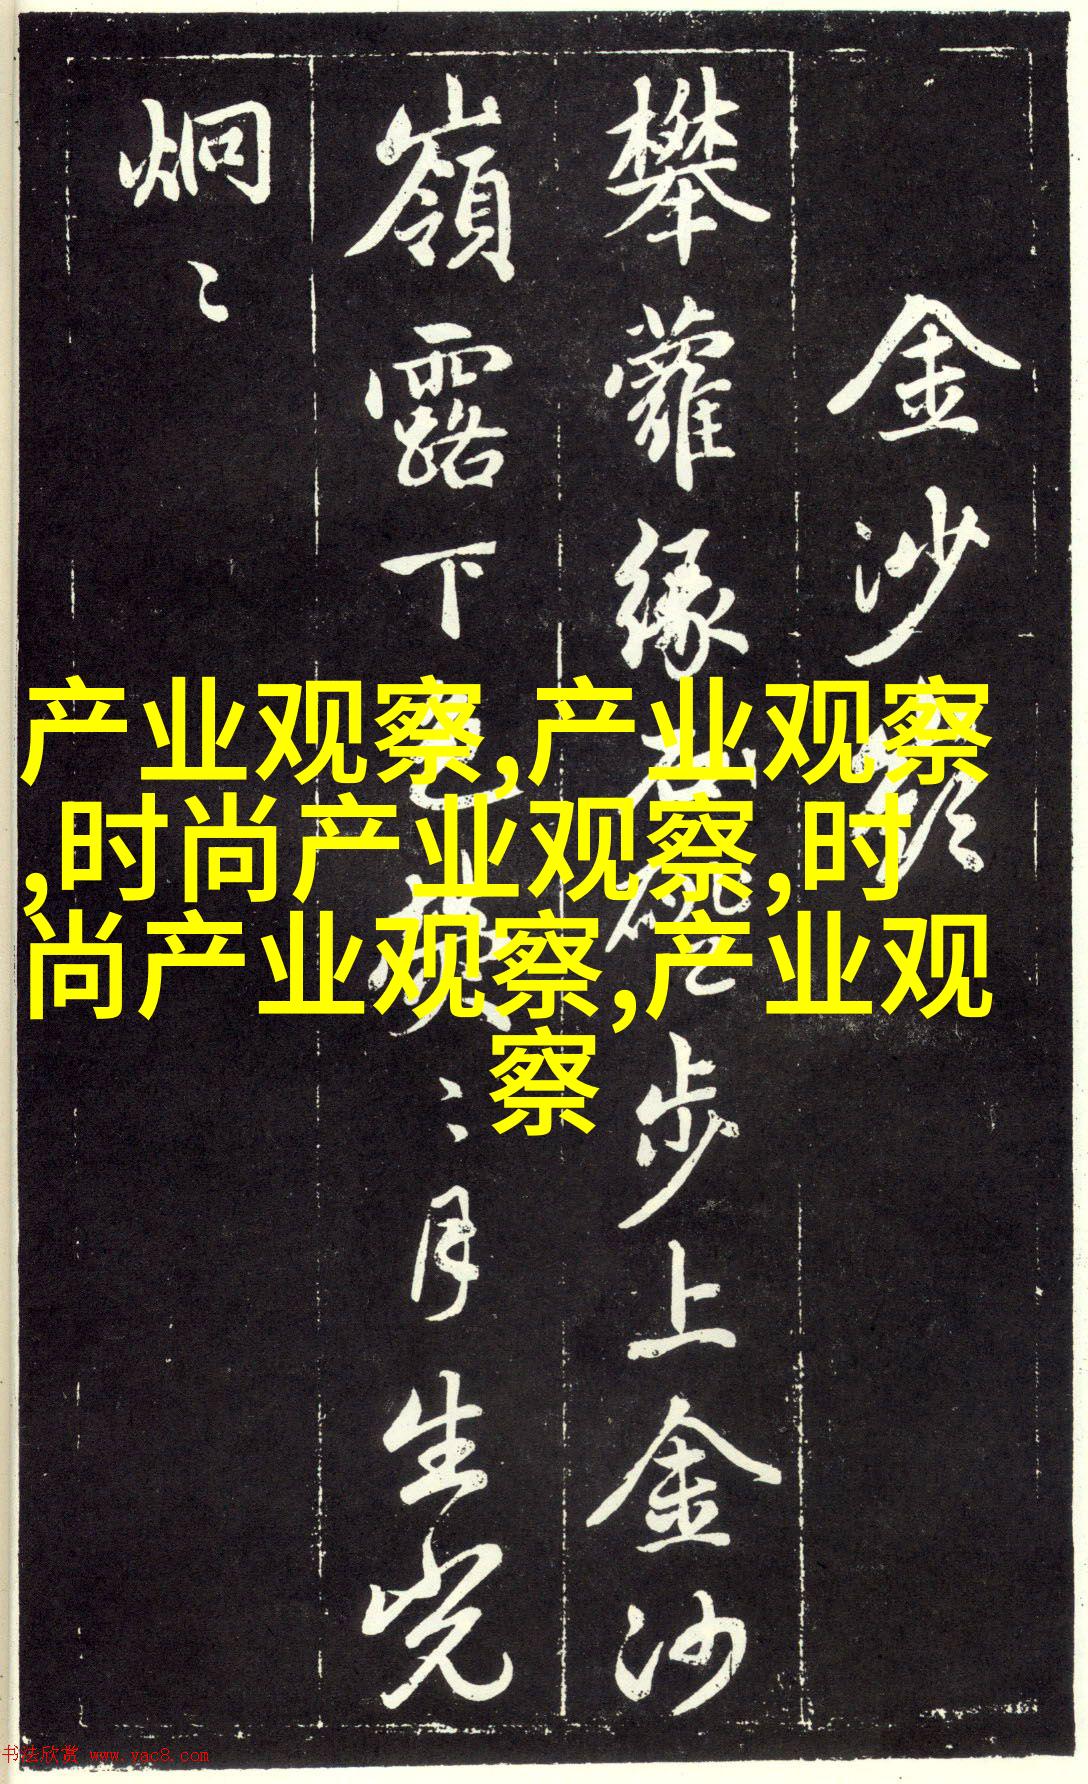 金沙嶺
攀蘿緣步上金沙
嶺露下色〻月生光
炯〻
产业观察,产业观察
,时尚产业观察,时
尚产业观察,产业观
察
书法欣赏 www.yac8.com